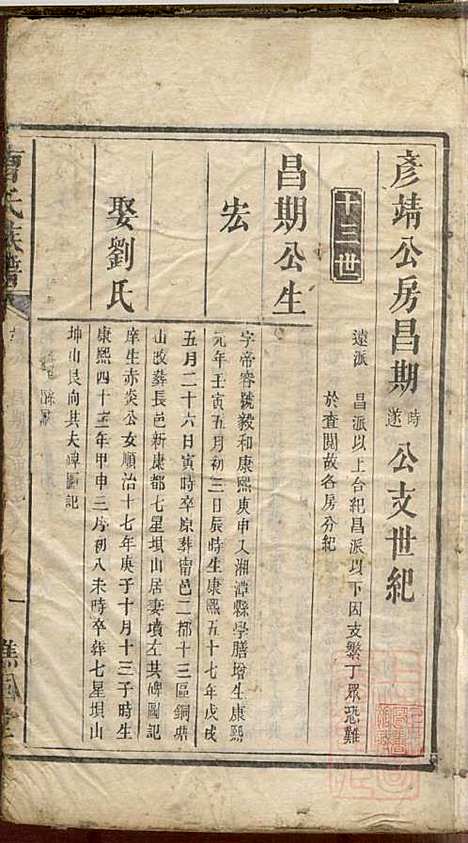 彥靖公房昌期時遂公支世紀
十三世
遠派　昌派以上合紀昌派以下因支繁丁眾恐難
於查閱故各房分紀
昌期公生
宏
字帝容號毅和康熙庚申入湘潭縣學膳增生康熙
元年壬寅五月初三日辰時生康熙五十七年戊戌
五月二十六日寅時卒原葬南邑二都十三區銅鼎
山改葬長邑新康都七星坝山居妻墳左共碑圖記
娶劉氏
庠生赤炎公女順治十七年庚子十月十三子時生
康熙四十三年甲申三月初八未時卒葬七星坝山
坤山艮向其夫碑圖記
曹氏族譜
一